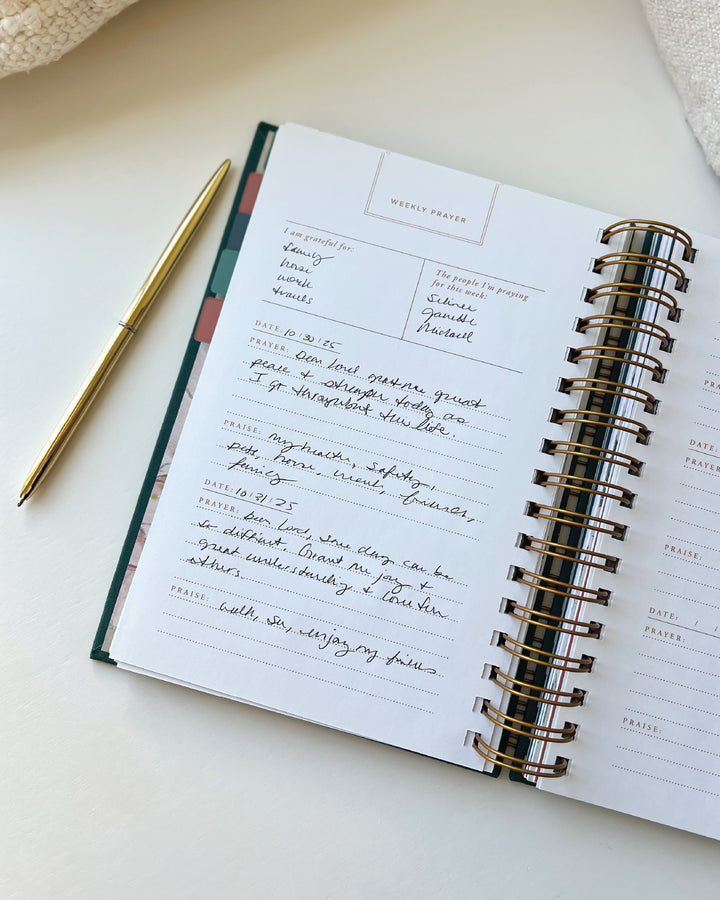 WEEKLY PRAYER
I am grateful for:
family
horse
work
travels
The people I'm praying
for this week:
Selinee
Janette
Michael
DATE: 10/30/25
PRAYER: Dear Lord, grant me great
peace & strength today as
I go throughout this life.
PRAISE: my health, safety,
pets, home, friends,
family
DATE: 10/31/25
PRAYER: Dear Lord, some days can be
so difficult. Grant me joy &
great understanding & love for
others
PRAISE: walk, enjoy my
DATE:
PRAYER:
PRAISE:
DATE: /
PRAYER:
PRAISE: